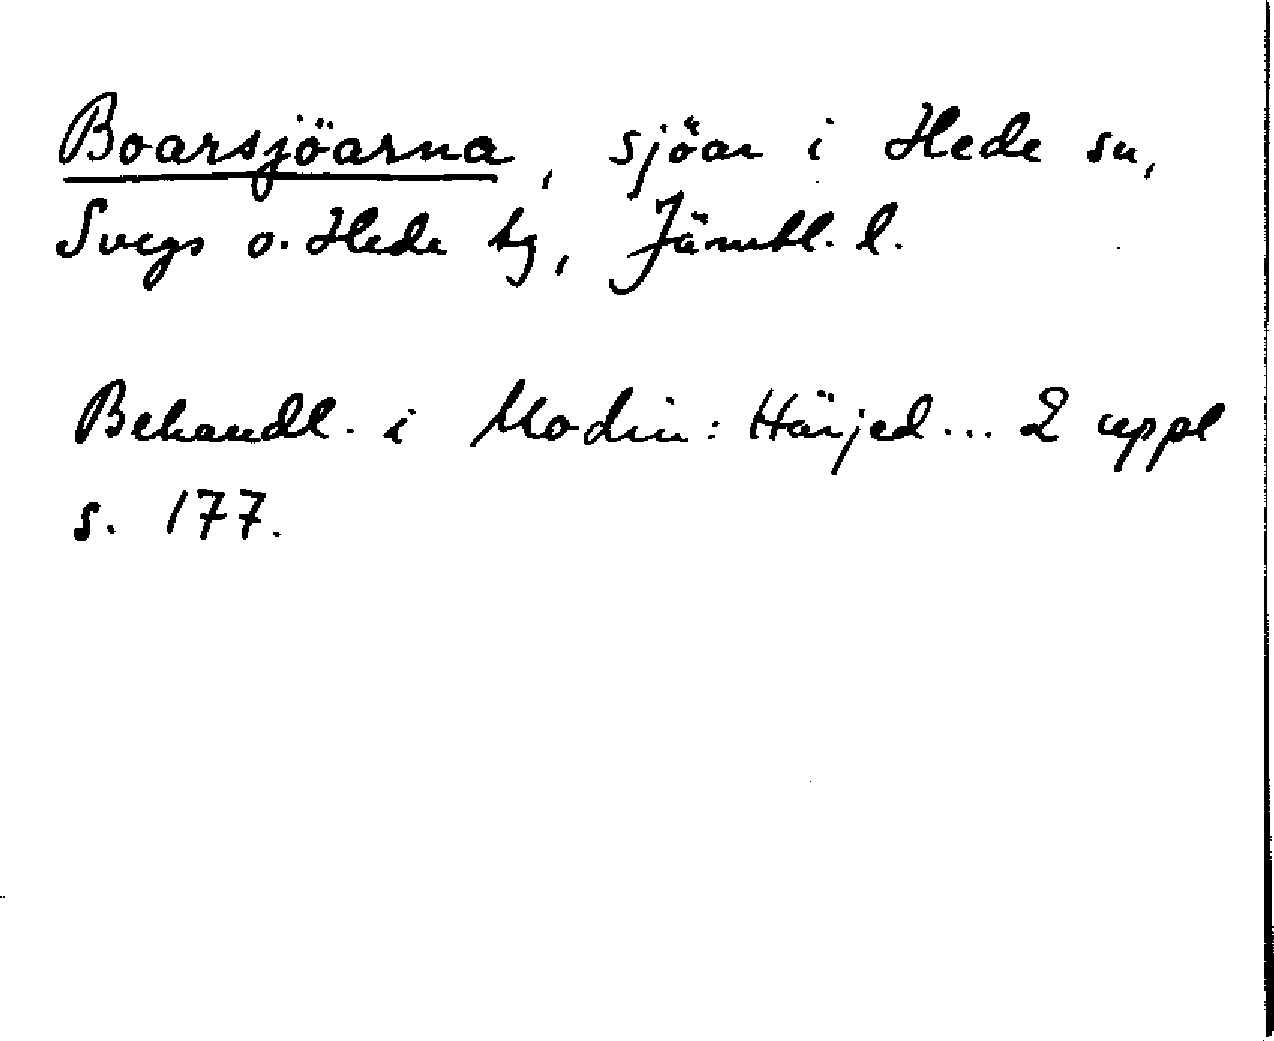 Boarsjöarna, sjöar i Hede sn,
Svegs o. Hede tg, Jämtl. l.
Behandl. i Modin: Härjed... 2 uppl
s. 177.